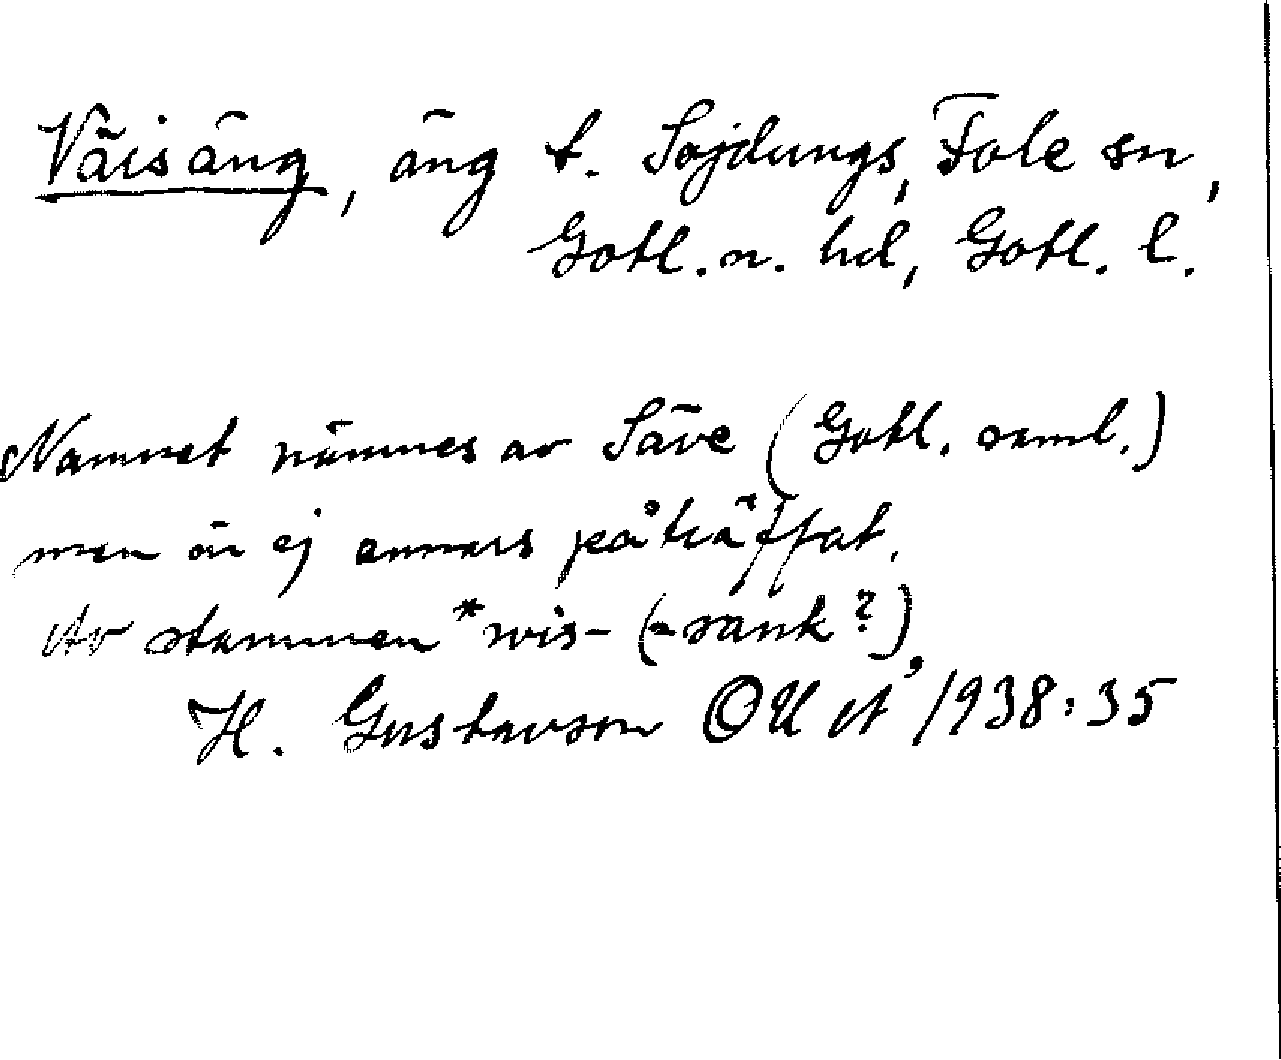 Väisäng, äng t. Sojdungs, Fole sn,
Gotl. n. hd, Gotl. l.
Namnet nämnes av Säve (Gotl. saml.)
men är ej annars påträffat.
Av stammen *wis- (= sank?)
H. Gustavson OUÅ 1938:35